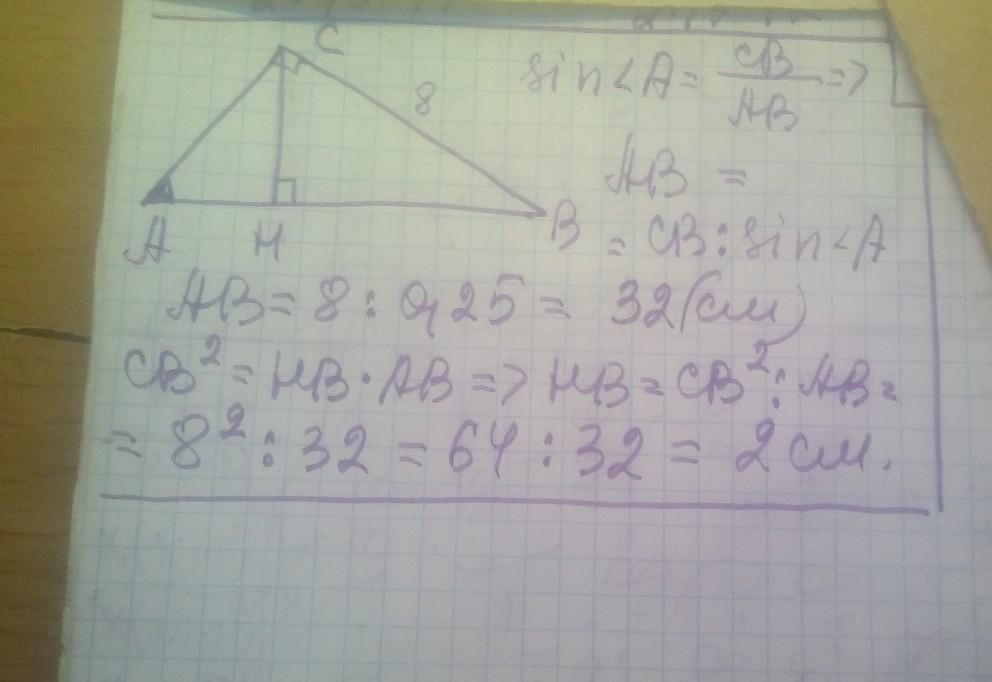 C
8
A H B
sin<A = CB/AB =>
AB =
= CB : sin<A
AB = 8 : 0,25 = 32 (см)
CB² = HB · AB => HB = CB² : AB =
= 8² : 32 = 64 : 32 = 2 см.